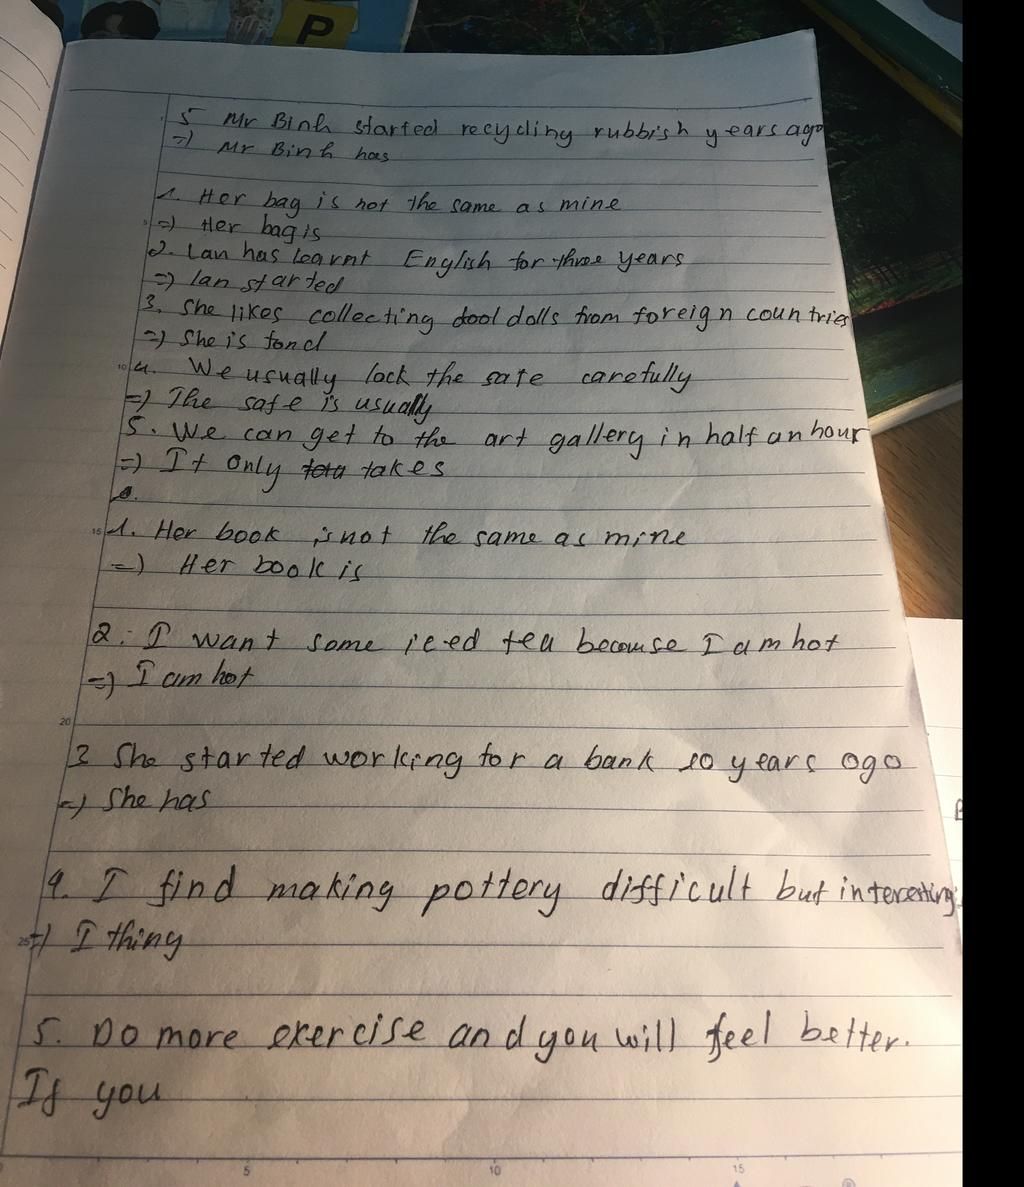 P
5 Mr Binh started recycling rubbish years ago
=) Mr Binh has
1. Her bag is not the same as mine
=) Her bag is
2. Lan has learnt English for three years
=) lan started
3. She likes collecting dool dolls from foreign countries
=) She is fond
10
4. We usually lock the safe carefully
=) The safe is usually
5. We can get to the art gallery in half an hour
=) It only takes
15
1. Her book is not the same as mine
=) Her book is
2. I want some iced tea because I am hot
=) I am hot
20
3 She started working for a bank 10 years ago
=) She has
4. I find making pottery difficult but interesting
25
=) I thing
5. Do more exercise and you will feel better.
If you
5 10 15